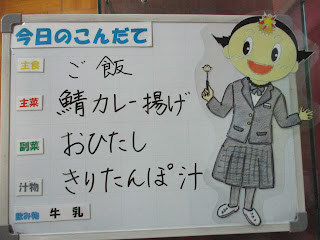 今日のこんだて
主食 ご飯
主菜 鯖カレー揚げ
副菜 おひたし
汁物 きりたんぽ汁
飲み物 牛乳